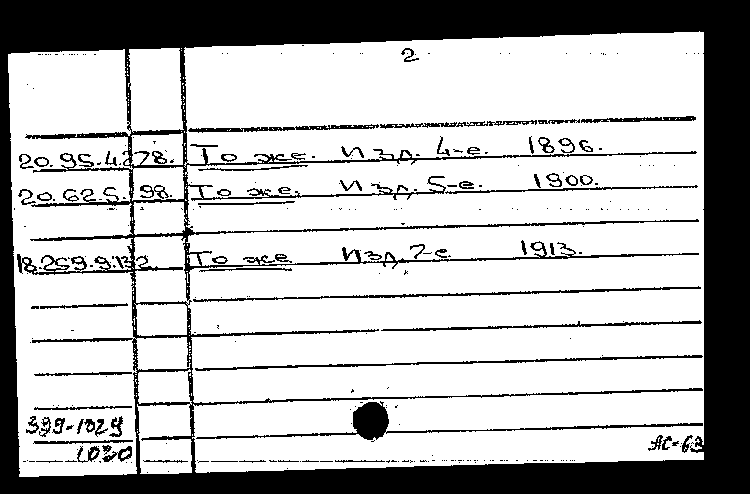 2
20.95.4.278. То же. Изд. 4-е. 1896.
20.62.5.98. То же. Изд. 5-е. 1900.
18.259.9.132 То же Изд. 7-е 1913.
399-1029
1030
АС-63